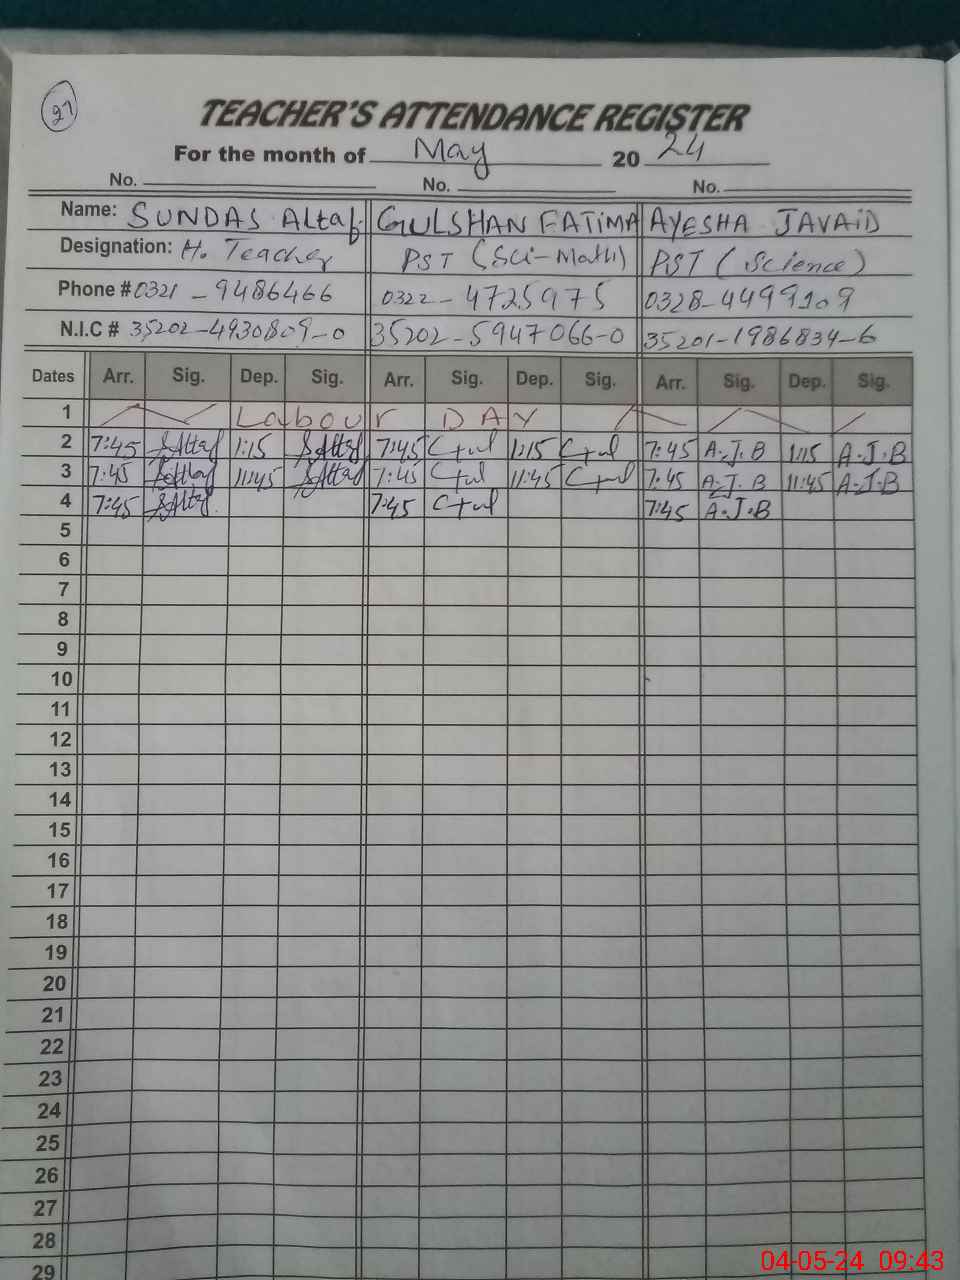 27
TEACHER'S ATTENDANCE REGISTER
For the month of May 2024
No. No. No.
Name: SUNDAS Altaf GULSHAN FATIMA AYESHA JAVAID
Designation: H. Teacher PST (Sci-Math) PST (Science)
Phone # 0321-9486466 0322-4725975 0328-4499109
N.I.C # 35202-4930809-0 35202-5947066-0 35201-1986834-6
Dates Arr. Sig. Dep. Sig. Arr. Sig. Dep. Sig. Arr. Sig. Dep. Sig.
1 Labour DAY
2 7:45 SAltaf 1:15 SAltaf 7:45 Gul 1:15 Gul 7:45 A.J.B 1:15 A.J.B
3 7:45 SAltaf 11:45 SAltaf 7:45 Gul 11:45 Gul 7:45 A.J.B 11:45 A.J.B
4 7:45 SAltaf 7:45 Gul 7:45 A.J.B
5
6
7
8
9
10
11
12
13
14
15
16
17
18
19
20
21
22
23
24
25
26
27
28
29
04-05-24 09:43